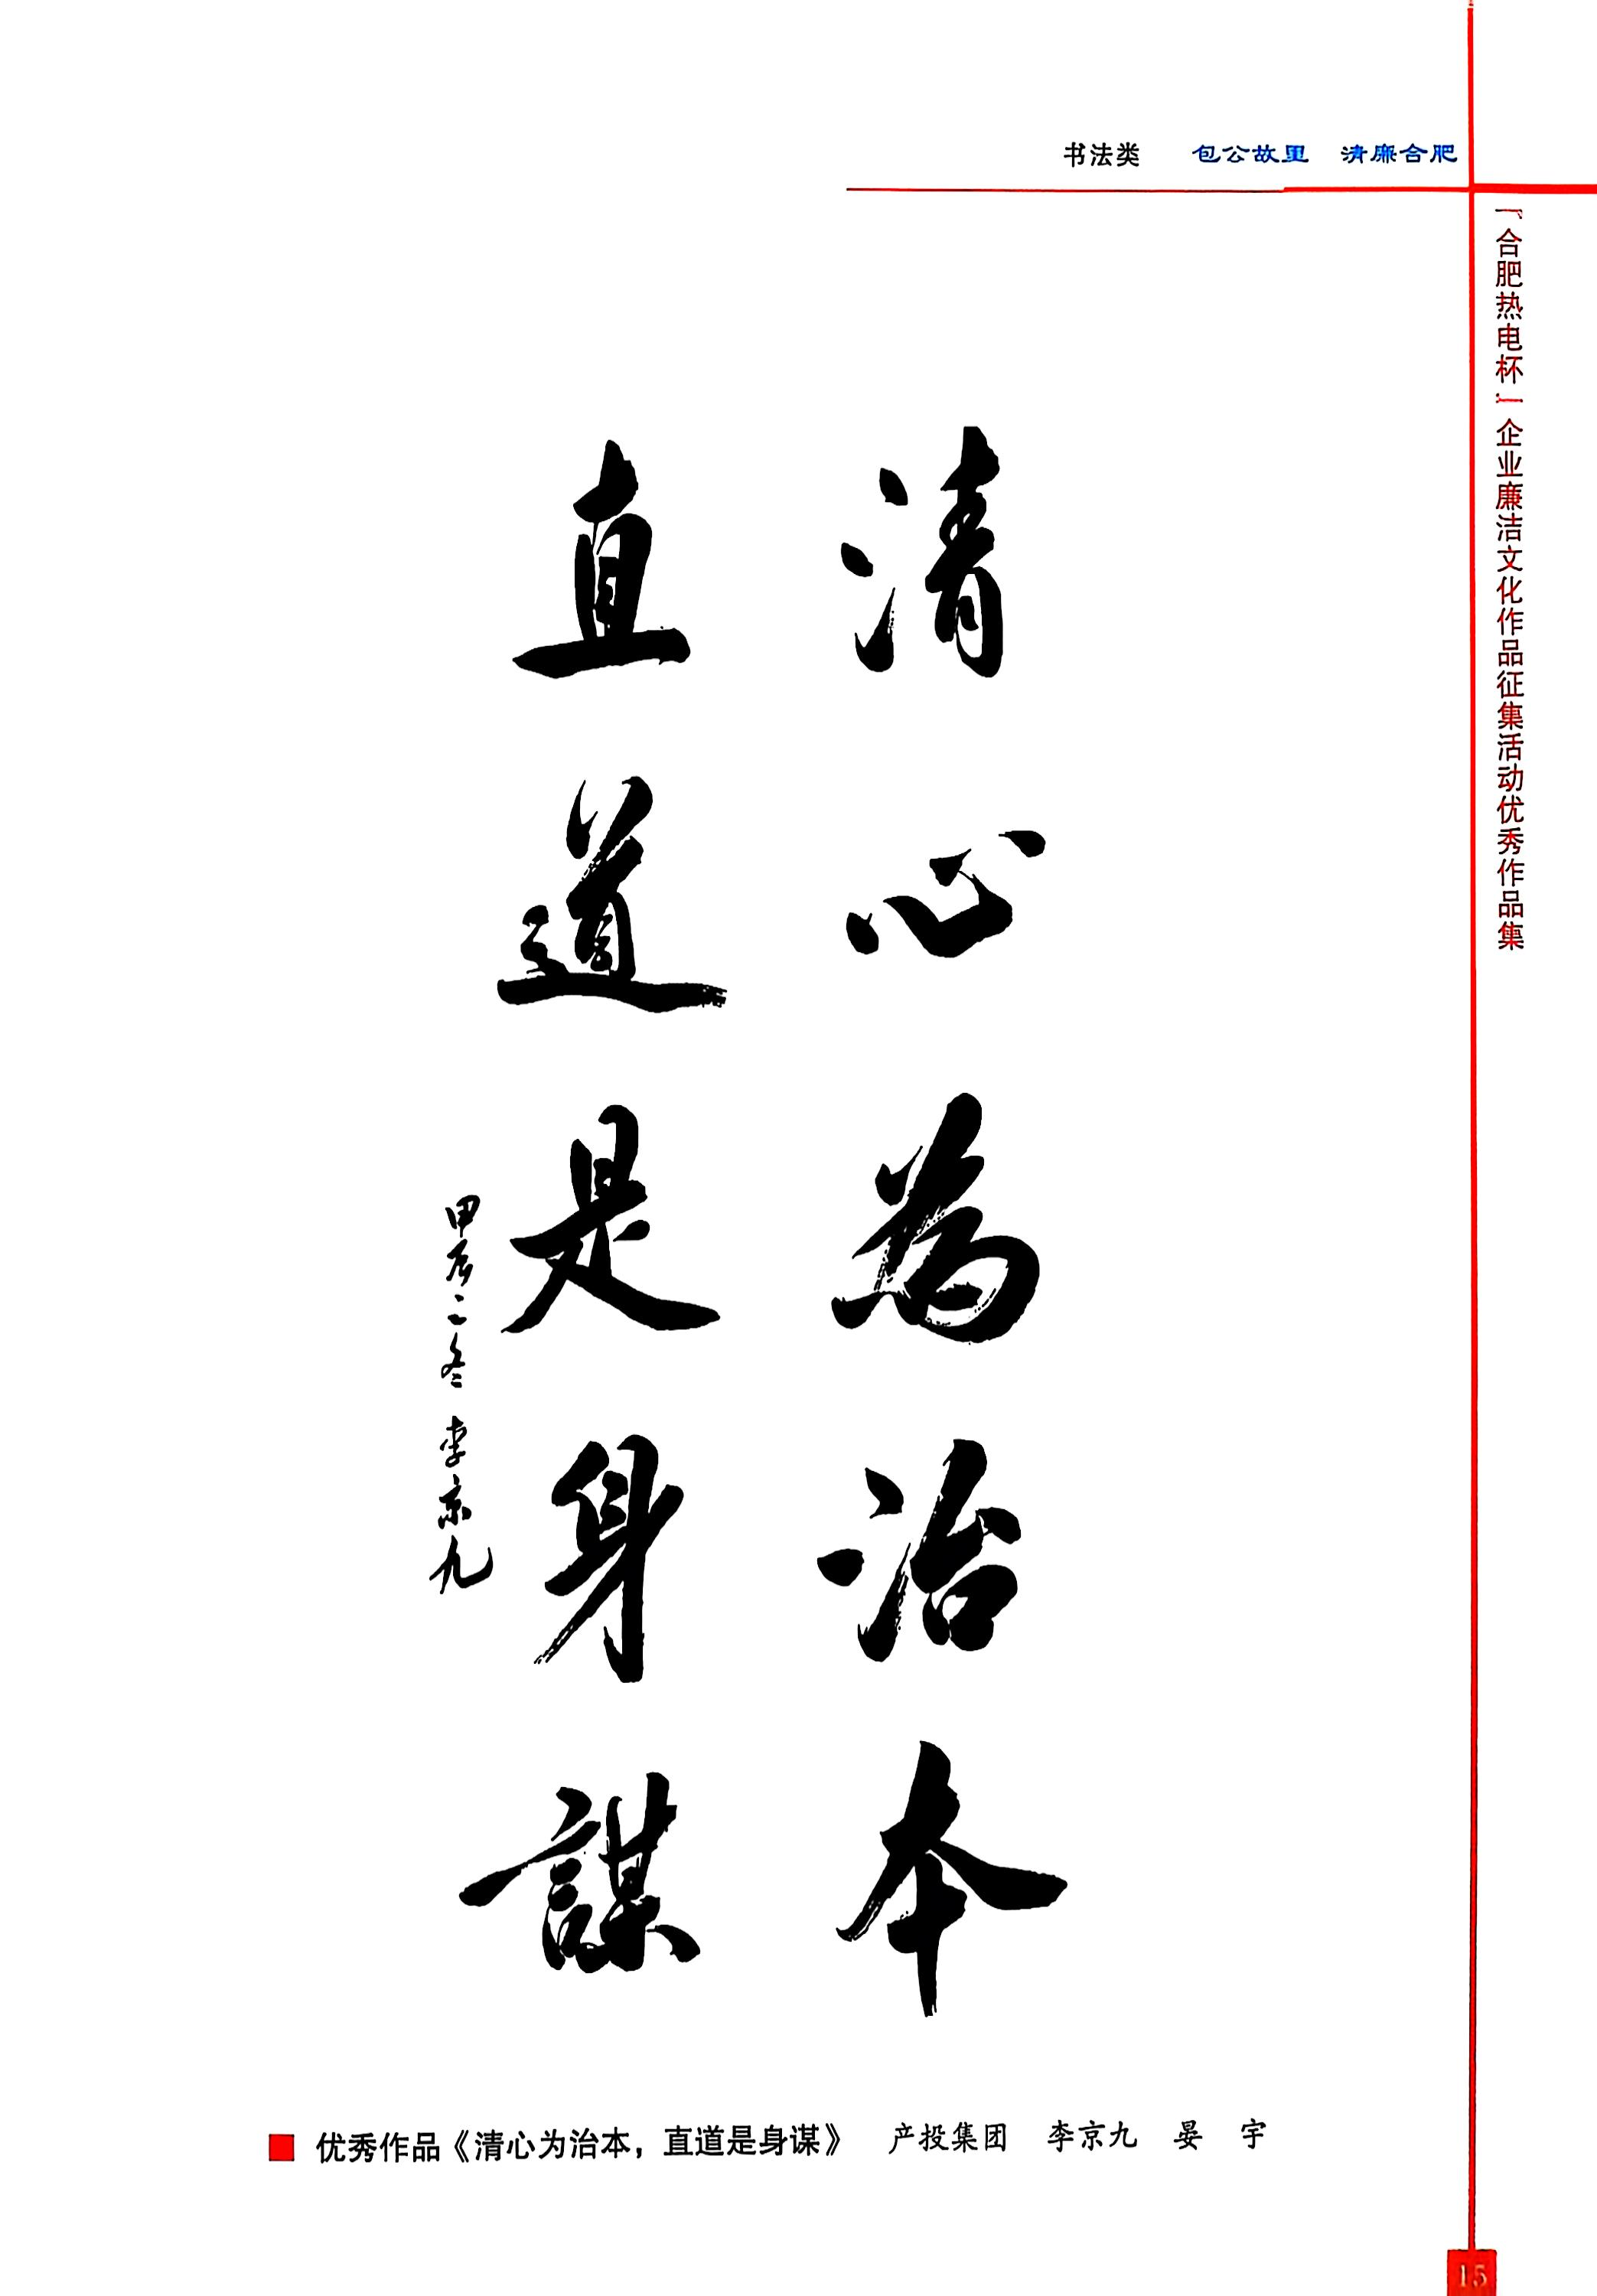 书法类 包公故里 清廉合肥
“合肥热电杯”企业廉洁文化作品征集活动优秀作品集
清心为治本
直道是身謀
李京九
优秀作品《清心为治本，直道是身谋》 产投集团 李京九 晏 宇
15